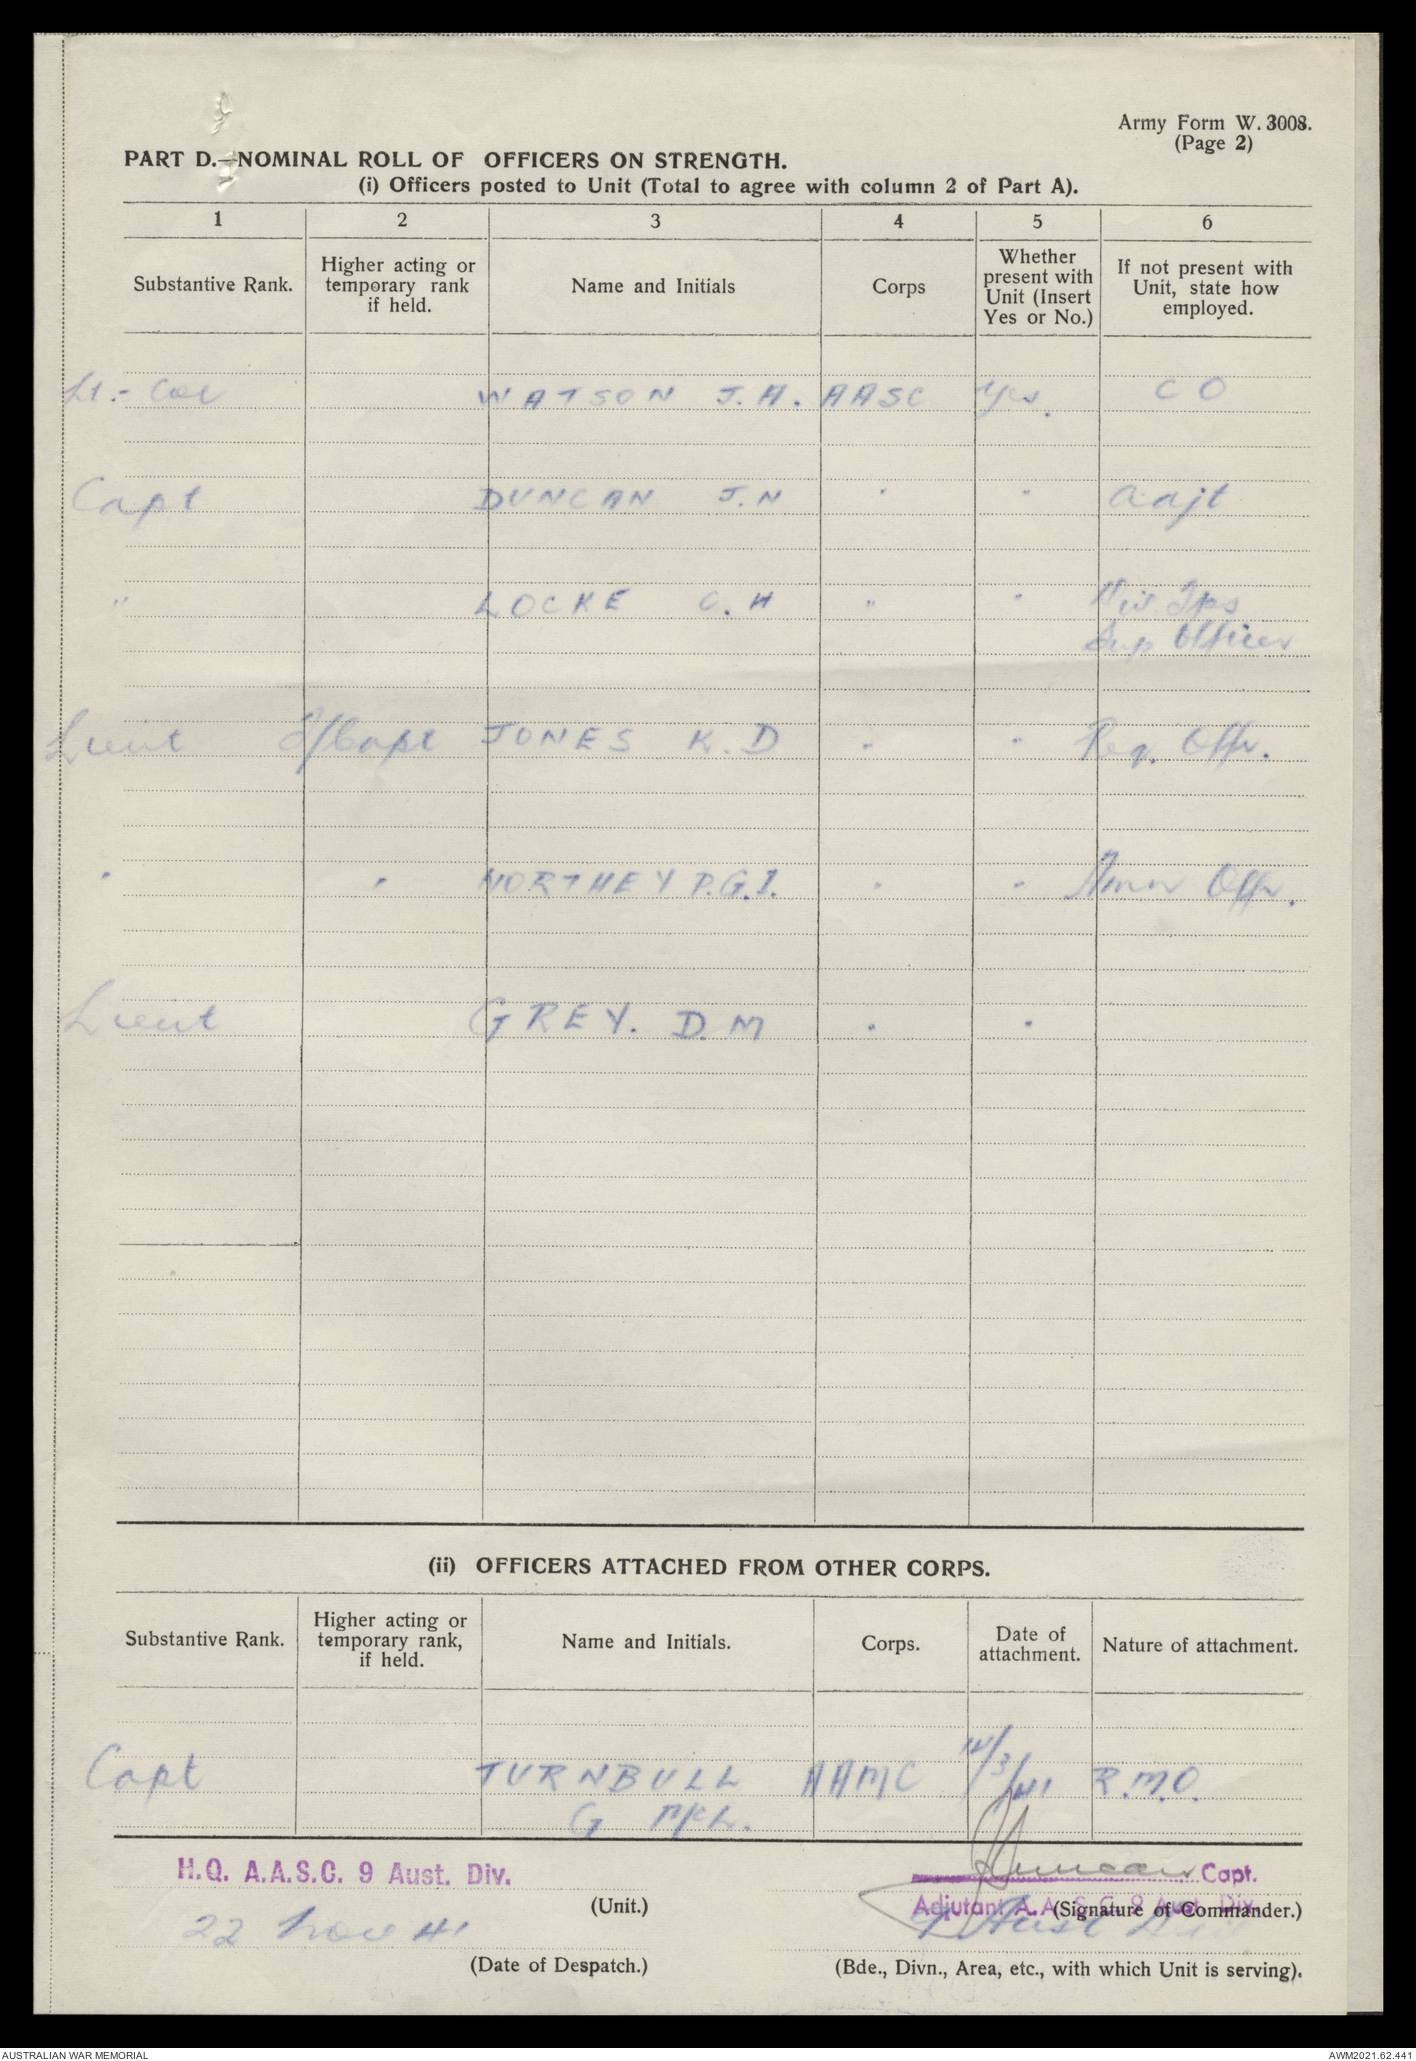 Army Form W. 3008.
(Page 2)
PART D.—NOMINAL ROLL OF OFFICERS ON STRENGTH.
(i) Officers posted to Unit (Total to agree with column 2 of Part A).
1 2 3 4 5 6
Substantive Rank. Higher acting or temporary rank if held. Name and Initials Corps Whether present with Unit (Insert Yes or No.) If not present with Unit, state how employed.
Lt.-Col WATSON J.A. AASC Yes. CO
Capt DUNCAN J.N " " Adjt
" LOCKE C.H " " Div Tps
Sup Officer
Lieut T/Capt JONES K.D " " Req. Offr.
" " NORTHEY P.G.I. " " Amn Offr.
Lieut GREY. D.M " "
(ii) OFFICERS ATTACHED FROM OTHER CORPS.
Substantive Rank. Higher acting or temporary rank, if held. Name and Initials. Corps. Date of attachment. Nature of attachment.
Capt TURNBULL AAMC 14/3/41 R.M.O.
G McL.
H.Q. A.A.S.C. 9 Aust. Div.
Duncan Capt.
(Unit.)
Adjutant A.A.S.C. 9 Aust. Div.
(Signature of Commander.)
22 Nov 41
9 Aust Div
(Date of Despatch.)
(Bde., Divn., Area, etc., with which Unit is serving).
AUSTRALIAN WAR MEMORIAL
AWM2021.62.441